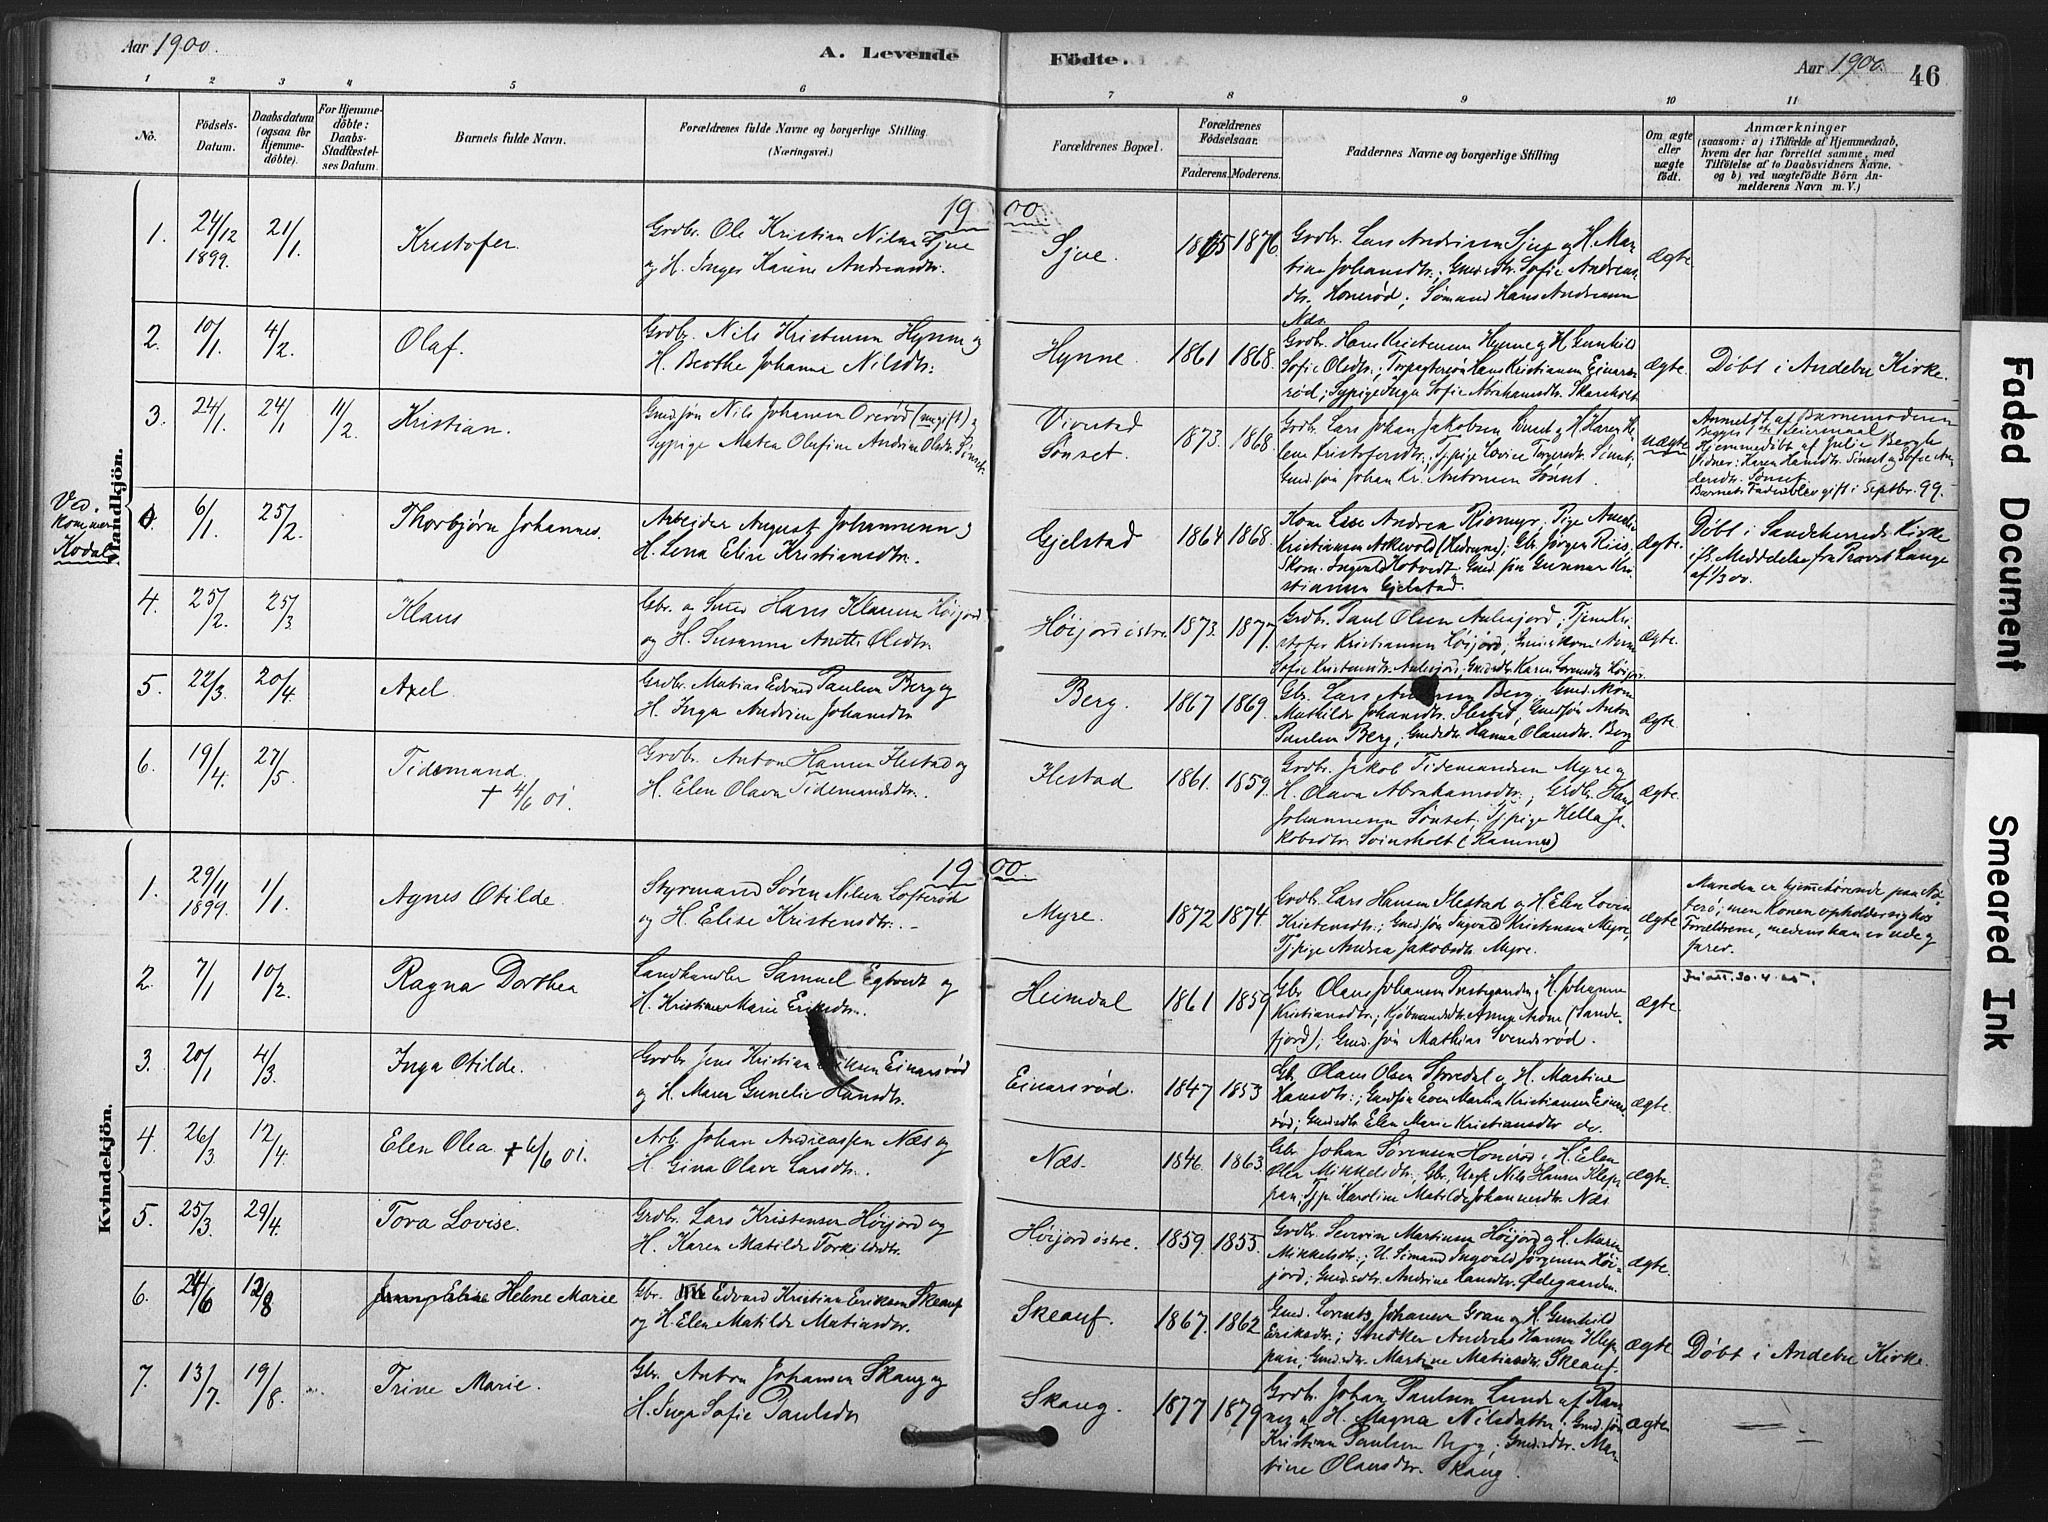 Aar 1900.
A. Levende
Födte.
Aar 1900.
46
1 2 3 4 5 6 7 8 9 10 11
No.
Födsels-
Datum.
Daabsdatum
(ogsaa for
Hjemme-
döbte).
For Hjemme-
döbte:
Daabs-
Stadfæstel-
ses Datum.
Barnets fulde Navn.
Forældrenes fulde Navne og borgerlige Stilling
(Næringsvei.)
Forældrenes Bopæl.
Forældrenes
Födselsaar.
Faderens. Moderens.
Faddernes Navne og borgerlige Stilling
Om ægte
eller
uægte
födt.
Anmærkninger
(saasom: a) i Tilfælde af Hjemmedaab,
hvem der har forrettet samme, med
Tilföielse af to Daabsvidners Navne.
og b) ved uægtefödte Börn An-
melderens Navn m. V.)
Mandkjön.
1900.
1.
24/12
1899.
21/1.
Kristofer
Grdbr. Ole Kristian Nilsen Sjue
og H. Inger Karine Andreasdtr.
Sjue.
1865 1876.
Grdbr. Lars Andersen Sjue og H. Mar-
tine Johansdtr.; Gmdsdtr. Sofie Andreas-
dtr. Honerød; Sømand Hans Andersen
Næs.
Ægte
2.
10/1.
4/2.
Olaf.
Grdbr. Nils Kristensen Hynne og
H. Berthe Johanne Nilsdtr.
Hynne.
1861 1868.
Grdbr. Hans Kristensen Hynne og H. Gunhild
Sofie Olsdtr.; Kristiansen Einars-
rød; Sypige Inga Sofie Abrahamsdtr. Skarsholt.
ægte.
Døbt i Andebu Kirke.
3.
24/1.
24/1
11/2.
Kristian.
Gmdsøn Nils Johansen Ørerød (ungift) og
Sypige Maten Olufine Andrine Olsdtr. Sønset.
Vivestad
Sønset.
1873. 1868.
Grdbr. Lars Johan Jakobsen Sønset og H. Karen He-
lene Kristofersdtr.; Tjpige Lovise Torgersdtr. Sønset;
Gmdsøn Johan Kr. Antonsen Sønset.
uægte
Anmeldt af Barnemoderen
Begges 1ste Leiermaal
Hjemmedøbt af Julie Berg
Vidner: Karen Hansdtr. Sønset og Sofie An-
dersdtr. Sønset.
Barnets Fader blev gift i Septbr. 99.
Ved.
kommer
Kodal
6/1.
25/2.
Thorbjørn Johannes.
Arbeider August Johannesen og
H. Lena Elise Kristiansdtr.
Gjelstad
1864 1868.
Kone Lise Andrea Riismyr; Pige Amalie
Kristiansen Askevold (Hedrum); Gbr. Jørgen Riis;
Skom. Ingvald Hotvedt. Gmd.søn Gunnar Kri-
stiansen Gjelstad.
Ægte.
Døbt i Sandeherreds Kirke
if. Meddelelse fra Provst Lange
af 1/3 00.
4.
25/2.
25/3.
Klaus
Gbr. og Smed Hans Klausen Høijord
og H. Susanna Anette Olsdtr.
Høijord østre.
1873. 1877.
Grdbr. Paul Olsen Aulesjord; Tjener Kri-
stofer Kristiansen Høijord; Gmdskone Anne
Sofie Kristensdtr. Aulesjord; Gmdsdtr. Karen Høijord.
ægte.
5.
22/3.
20/4.
Axel.
Grdbr. Matias Edvard Paulsen Berg og
H. Inga Andrine Johansdtr.
Berg.
1867 1869.
Gbr. Lars Berg. Gmd.kone
Mathilde Johansdtr. Ilestad, Gmdsøn Anton
Paulsen Berg; Gmdsdtr. Hanna Olausdtr. Berg
Ægte
6.
19/4.
27/5.
Tidemand.
✝ 4/6 01.
Grdbr. Anton Hansen Ilestad og
H. Elen Olava Tidemandsdtr.
Ilestad
1861. 1859.
Grdbr. Jakob Tidemandsen Myre og
H. Olava Abrahamsdtr.; Grdbr. Hans
Johannesen Sønset. Tjpige Hella Ja-
kobsdtr. Svinsholt (Ramnes)
ægte.
Kvindekjön.
1900.
1.
29/11
1899.
1/1.
Agnes Otilde.
Styrmand Søren Nilsen Lofterød
og H. Elise Kristensdtr.
Myre.
1872 1874.
Grdbr. Lars Hansen Ilestad og H. Elen Lovise
Kristensdtr.; Gmdsøn Ingvald Kristensen Myre;
Tjpige Andrea Jakobsdtr. Myre.
ægte.
Manden er hjemmehørende paa Nø-
terø; men Konen opholder sig hos
Forældrene, medens han er ude og
farer.
2.
7/1.
10/2.
Ragna Dorthea
Landhandler Samuel Egtvedt og
H. Kristine Marie Eriksdtr.
Heimdal
1861 1859
Gbr. Olaus Johansen Prestegaarden og H. Johanne
Kristiansdtr.; Kjøbmandsdtr. Anne Moe (Sande-
fjord); Gmd.søn Mathias Svendsrød.
ægte.
30.4.45.
3.
20/1
4/3.
Inga Otilde.
Grdbr. Jens Kristian Eriksen Einarsrød
og H. Maren Gunelie Hansdtr.
Einarsrød.
1847 1853
Gbr. Olaus Olsen Storedal og H. Martine
Hansdtr.; Gmdsøn Even Martin Kristiansen Einars-
rød; Gmdsdtr. Elen Marie Kristiansdtr do.
ægte.
4.
26/3.
12/4.
Elen Olea. ✝ 6/6 01.
Arb. Johan Andreassen Næs og
H. Gina Olave Larsdtr.
Næs.
1846. 1863.
Gbr. Johan Sørensen Honerød; H. Elen
Olea Mikkelsdtr.; Gbr. Ungk. Nils Hansen Klep-
pan; Tjp. Karoline Matilde Johannesdtr. Næs
ægte.
5.
25/3.
29/4.
Tora Lovise.
Grdbr. Lars Kristensen Høijord og
H. Karen Matilde Torkildsdtr.
Høijord østre.
1859. 1855.
Grdbr. Severin Martinsen Høijord og H. Maren
Mikkelsdtr.; U. Sømand Ingvald Jørgensen Høi-
jord; Gmdsdtr. Andrine Hansdtr. Ødegaarden.
ægte.
6.
24/6
12/8
Helene Marie
Gbr. Edvard Kristian Eriksen Skeauf
og H. Elen Matilde Matiasdtr.
Skeauf.
1867. 1862
Gmd. Lorents Johansen Gran og H. Gunhild
Eriksdtr.; Snedker Andreas Hansen Klep-
pan; Gmdsdtr. Martine Matiasdtr. Skeauf.
ægte
Døbt i Andebu Kirke.
7.
13/7.
19/8.
Trine Marie.
Gbr. Anton Johansen Skaug og
H. Inga Sofie Paulsdtr
Skaug.
1877 1879
Grdb. Johan Paulsen Lunde af Ram-
nes og H. Magna Nilsdatter. Gmd.søn
Kristian Paulsen Berg; Gmdsdtr. Mar-
tine Olausdtr. Skaug.
ægte
Faded Document
Smeared Ink